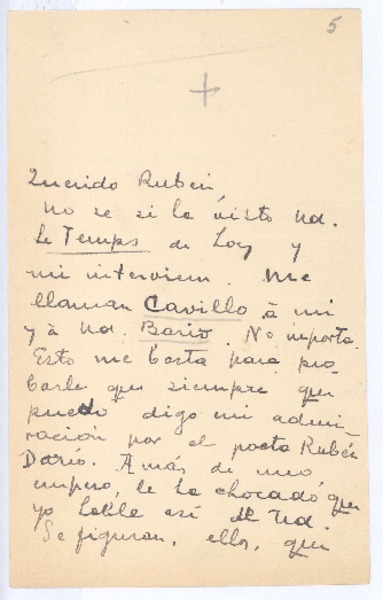 5
Querido Rubén,
No se si la visto Ud.
Le Temps de hoy y
mi interview. Me
llaman Cavillo à mi
y à Ud. Bario. No importa.
Esto me basta para pro-
barle que siempre que
puedo digo mi admi-
ración por el poeta Rubén
Darío. A más de uno
empero, le ha chocado que
yo hable así de Ud.
Se figuran, ellos, que